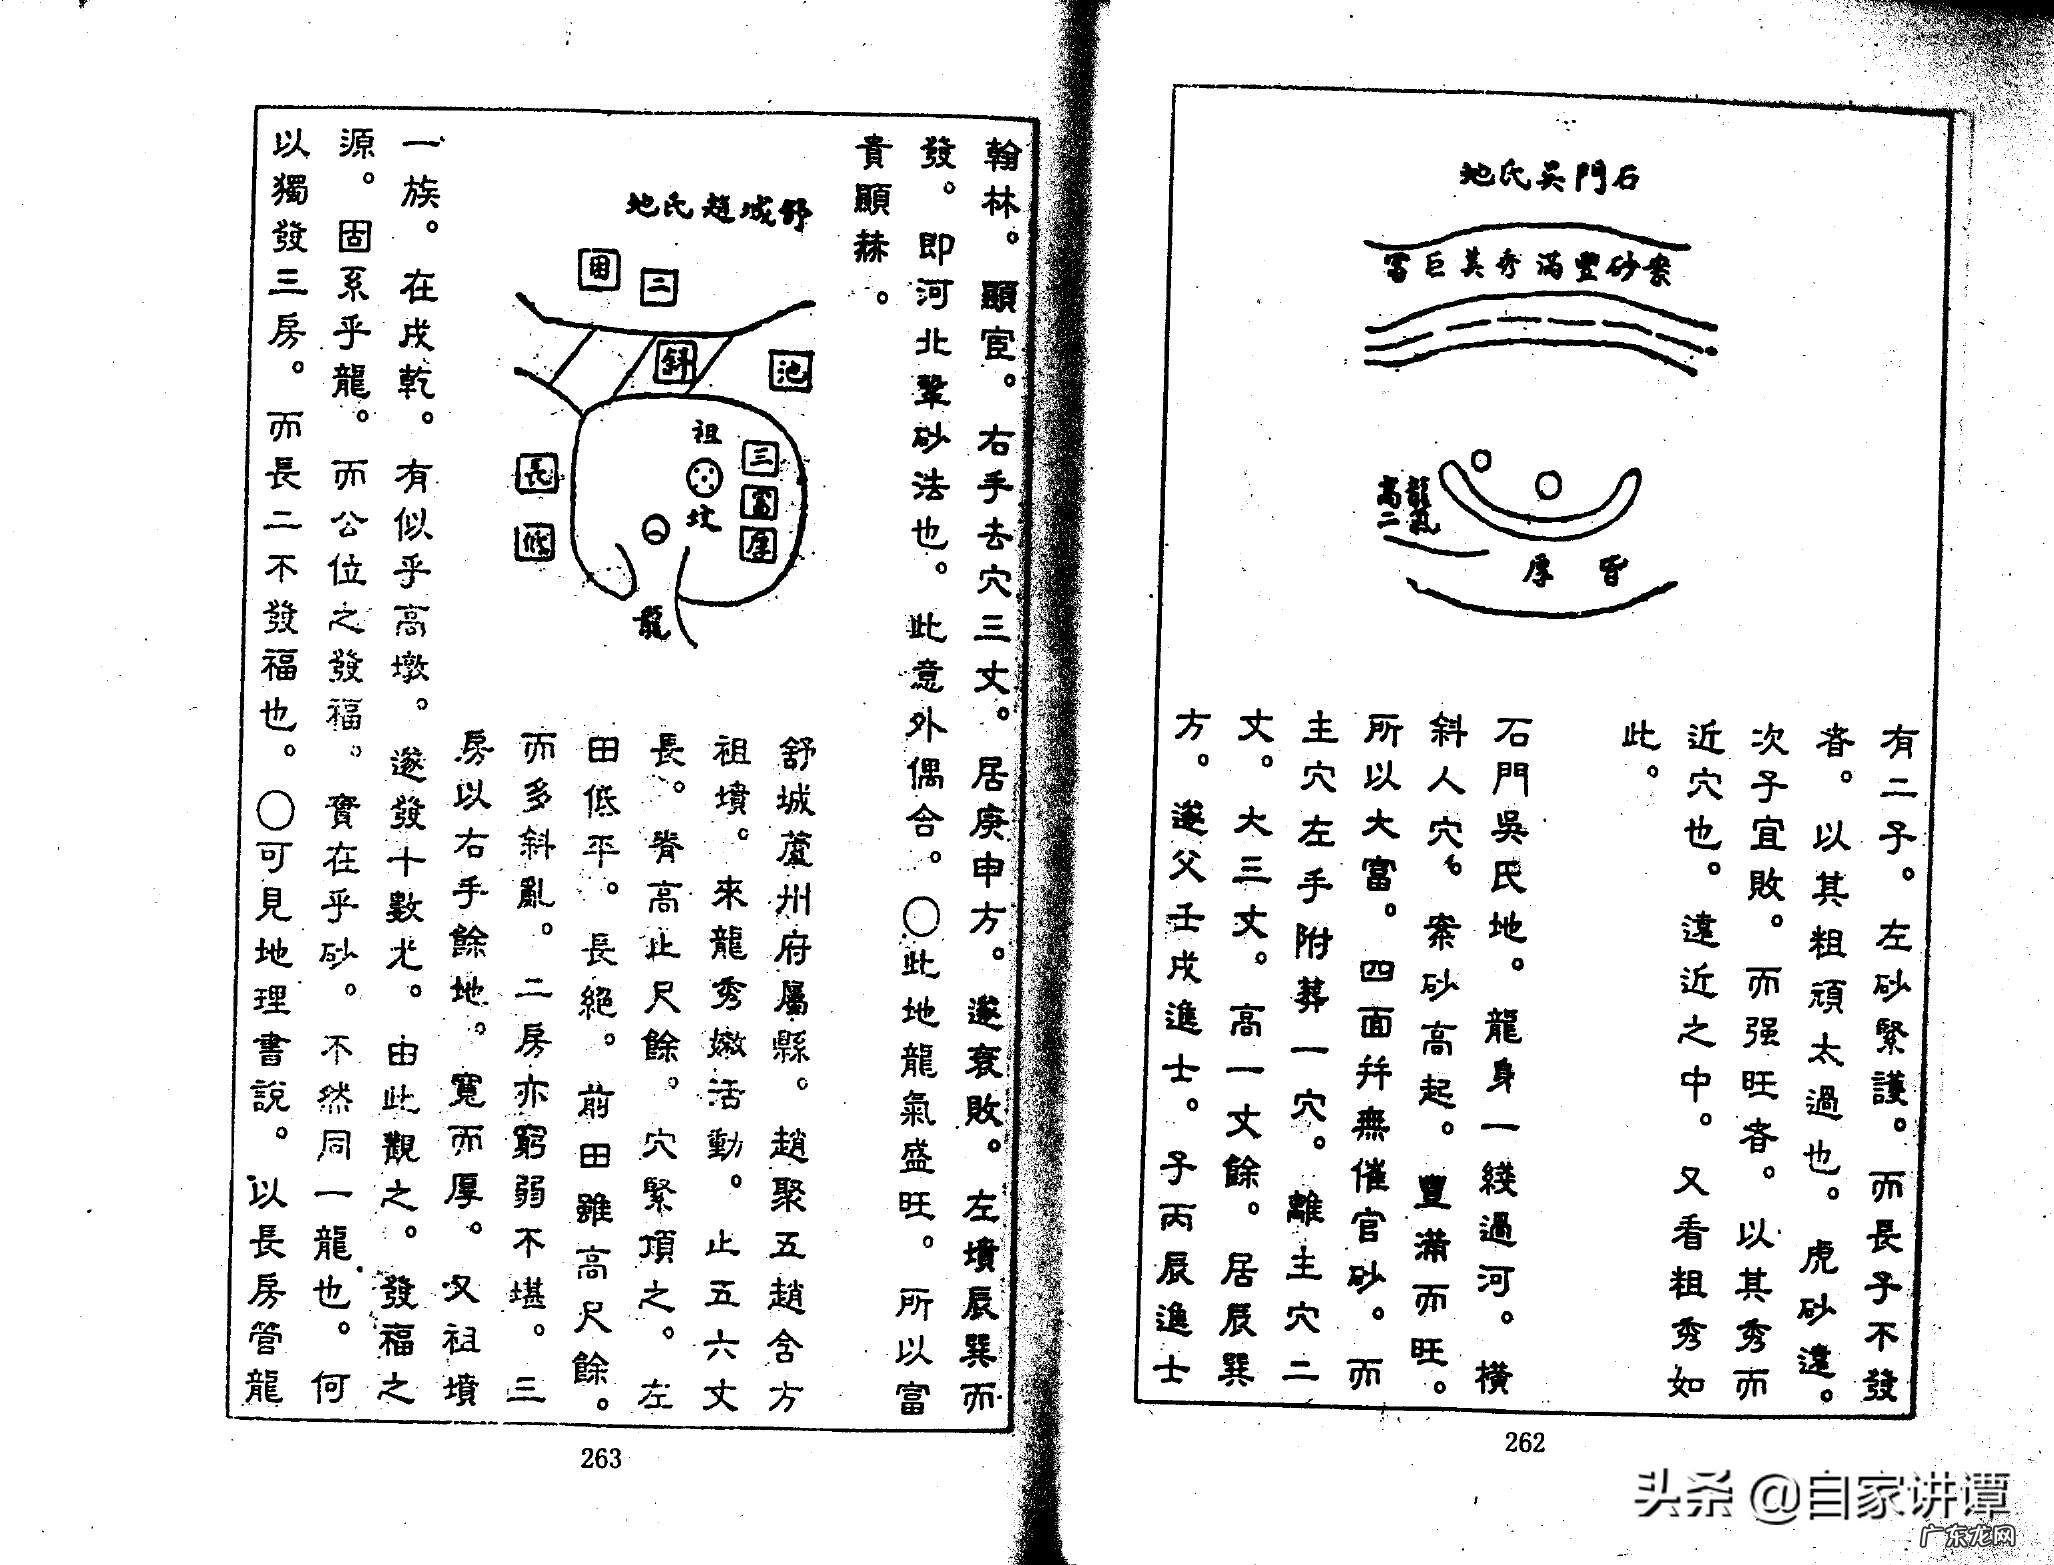 石門吳氏地
案砂豐滿秀其巨富
龍氣
高二
皆厚
有二子。左砂緊護。而長子不發
者。以其粗頑太過也。虎砂遠。
次子宜敗。而强旺者。以其秀而
近穴也。遠近之中。又看粗秀如
此。
石門吳氏地。龍身一綫過河。橫
斜人穴。案砂高起。豐滿而旺。
所以大富。四面幷無催官砂。而
主穴左手附葬一穴。離主穴二
丈。大三丈。高一丈餘。居辰巽
方。遂父壬戌進士。子丙辰進士
262
翰林。顯宦。右手去穴三丈。居庚申方。遂衰敗。左墳辰巽而
發。即河北鞏砂法也。此意外偶合。〇此地龍氣盛旺。所以富
貴顯赫。
舒城趙氏地
二
困
池
斜
祖
坟
三
富
厚
長
敗
龍
舒城蘆州府屬縣。趙聚五趙含方
祖墳。來龍秀嫩活動。止五六丈
長。脊高止尺餘。穴緊頂之。左
田低平。長絕。前田雖高尺餘。
而多斜亂。二房亦窮弱不堪。三
房以右手餘地。寬而厚。又祖墳
一族。在戌乾。有似乎高墩。遂發十數尤。由此觀之。發福之
源。固系乎龍。而公位之發福。實在乎砂。不然同一龍也。何
以獨發三房。而長二不發福也。〇可見地理書說。以長房管龍
263
头条 @自家讲谭
广东龙网